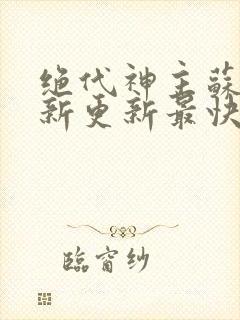 绝代神主蘇
新更新最快
臨窗纱